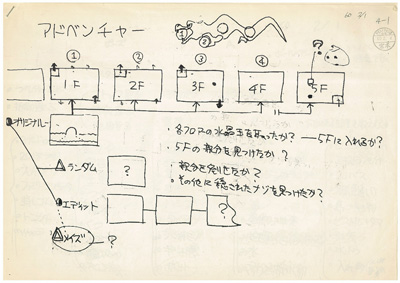 アドベンチャー
10 31
4-1
① ② ③ ④
① ②
1F 2F 3F 4F 5F
?
オリジナル
・各フロアの水晶玉を取ったか? ── 5Fに入れるか?
・5Fの親分を見つけたか?
・親分を倒せたか?
・その他に隠されたナゾを見つけたか?
ランダム ?
エディット ?
メイズ ?